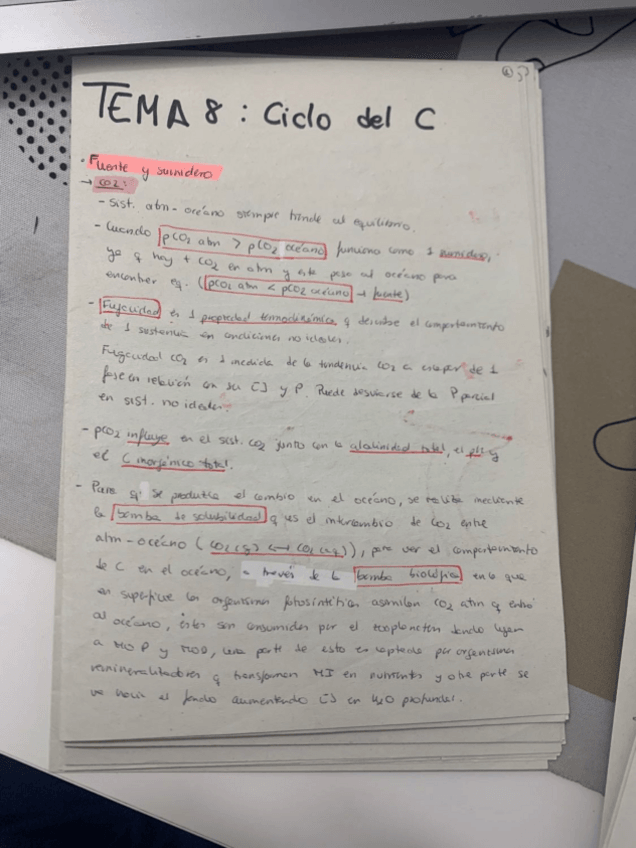 TEMA 8: Ciclo del C
· Fuente y sumidero
→ CO2:
- Sist. atm-océano siempre tiende al equilibrio.
- Cuando pCO2 atm > pCO2 océano funciona como 1 sumidero,
ya q hay + CO2 en atm y este pasa al océano para
encontrar eq. (pCO2 atm < pCO2 océano → fuente)
- Fugacidad es 1 propiedad termodinámica q describe el comportamiento
de 1 sustancia en condiciones no ideales.
Fugacidad CO2 es 1 medida de la tendencia CO2 a escapar de 1
fase en relación con su [] y P. Puede desviarse de la P parcial
en sist. no ideales.
- pCO2 influye en el sist. CO2 junto con la alcalinidad total, el pH y
el C inorgánico total.
- Para q se produzca el cambio en el océano, se realiza mediante
la bomba de solubilidad q es el intercambio de CO2 entre
atm-océano (CO2 (g) ↔ CO2 (aq)), para ver el comportamiento
de C en el océano, a través de la bomba biológica en la que
en superficie los organismos fotosintéticos asimilan CO2 atm q entró
al océano, éstos son consumidos por el zooplancton dando lugar
a MOP y MOD, una parte de esto es captada por organismos
remineralizadores q transforman MI en nutrientes y otra parte se
va hacia el fondo aumentando [] en H2O profundas.